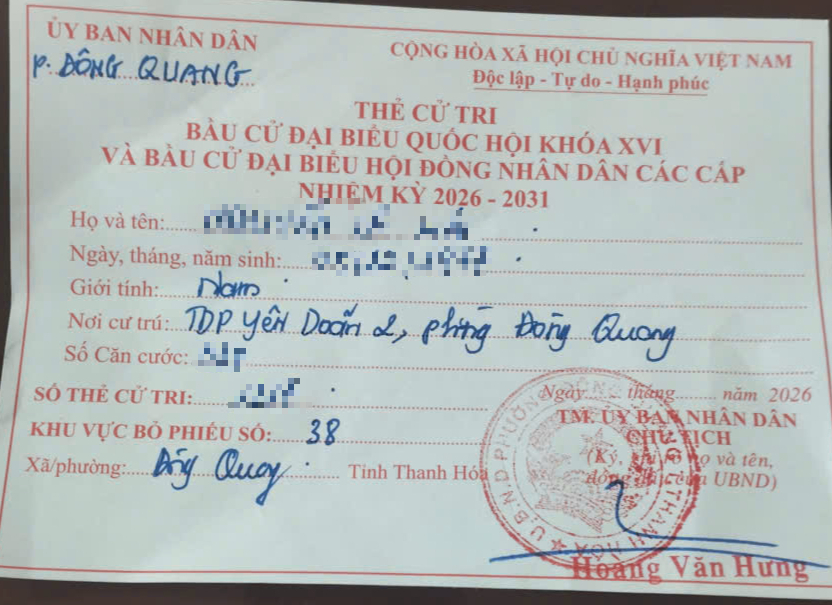 ỦY BAN NHÂN DÂN
P. ĐÔNG QUANG
CỘNG HÒA XÃ HỘI CHỦ NGHĨA VIỆT NAM
Độc lập - Tự do - Hạnh phúc
THẺ CỬ TRI
BẦU CỬ ĐẠI BIỂU QUỐC HỘI KHÓA XVI
VÀ BẦU CỬ ĐẠI BIỂU HỘI ĐỒNG NHÂN DÂN CÁC CẤP
NHIỆM KỲ 2026 - 2031
Họ và tên:
Ngày, tháng, năm sinh:
Giới tính: Nam
Nơi cư trú: TDP Yên Doãn 2, phường Đông Quang
Số Căn cước:
SỐ THẺ CỬ TRI:
KHU VỰC BỎ PHIẾU SỐ: 38
Xã/phường: Đông Quang Tỉnh Thanh Hóa
Ngày tháng năm 2026
TM. ỦY BAN NHÂN DÂN
CHỦ TỊCH
(Ký, ghi rõ họ và tên,
đóng dấu của UBND)
U.B.N.D PHƯỜNG ĐÔNG QUANG
T. THANH HÓA
Hoàng Văn Hưng